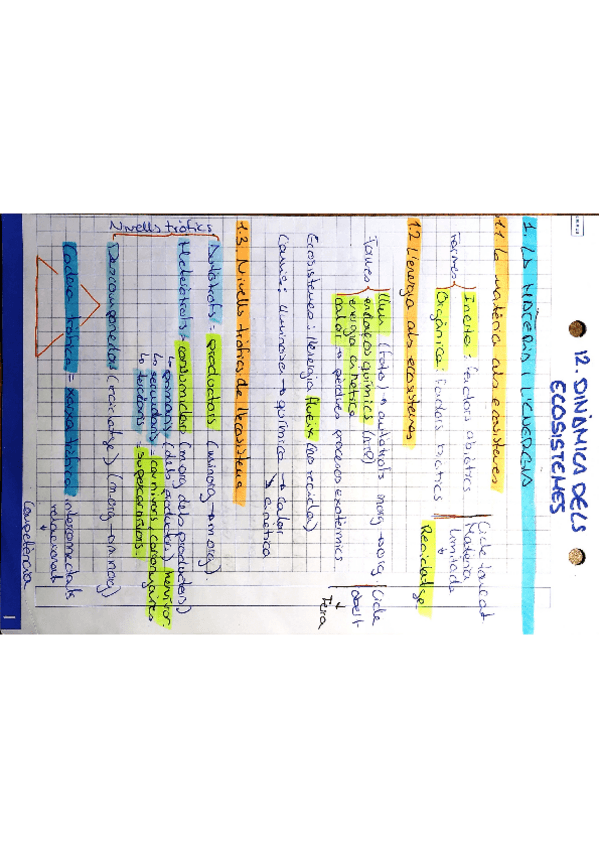 12. DINÀMICA DELS
ECOSISTEMES
1. LA MATÈRIA I L'ENERGIA
1.1 La matèria als ecosistemes
Formes
Inerte: Factors abiòtics
Orgànica: Factors biòtics
Cicle tancat
Matèria
limitada
Reciclatge
1.2 L'energia als ecosistemes
Formes
llum (fotos) → autòtrofs inorg → org
enllaços químics (ATP)
energia cinètica
calor → perdues processos exotèrmics.
Cicle
obert
Ecosistemes: l'energia flueix (no recicla)
Canvis: lluminosa → química → calor
cinètica
1.3. Nivells tròfics de l'ecosistema
Nivells tròfics
Autòtrofs = productors (m.inorg → m.org).
Heteròtrofs = consumidors (m.org dels productors)
primaris (dels productors) herbívor
secundaris carnívors, carronyaires
terciaris = supercarnívors.
Descomponedors (reciclatge) (m.org → m.inorg)
Cadena tròfica = xarxa tròfica
interconnectada
relacionada
Competència
1